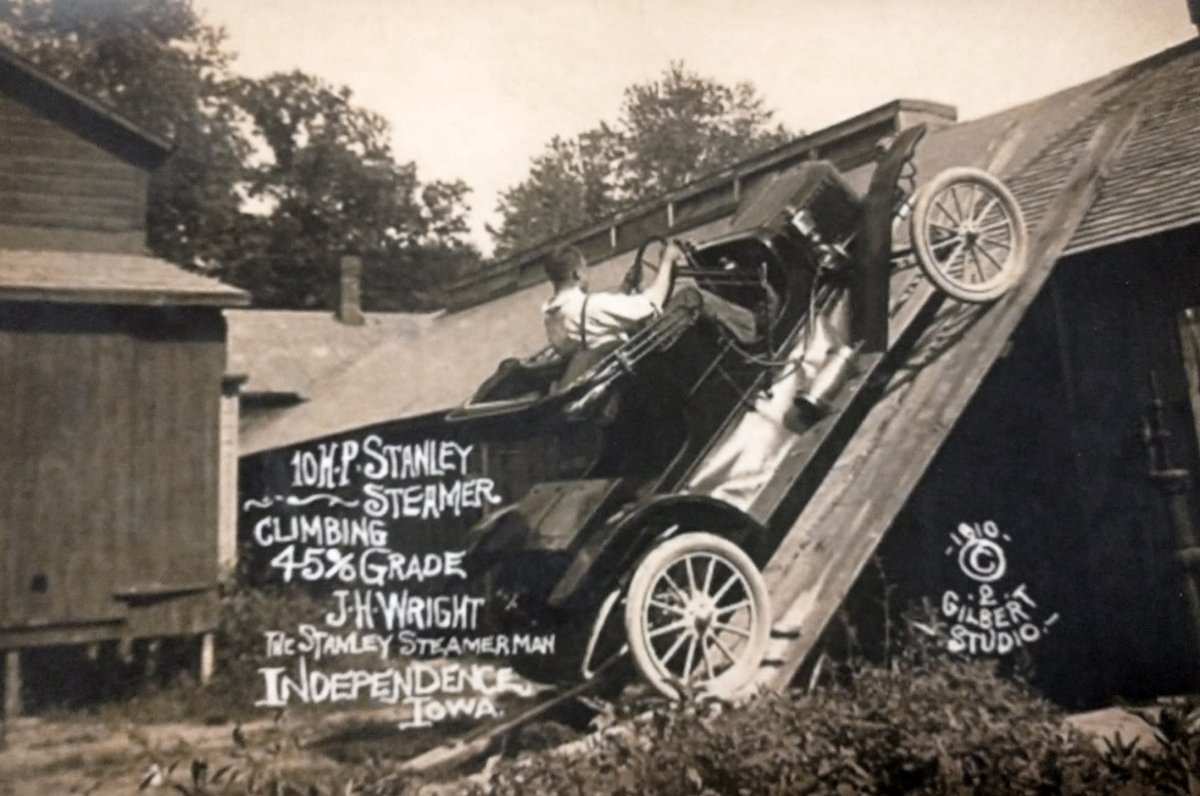 10 H.P. STANLEY
STEAMER
CLIMBING
45% GRADE
J.H. WRIGHT
THE STANLEY STEAMER MAN
INDEPENDENCE
IOWA.
-1910-
©
-2-
GILBERT
STUDIO.